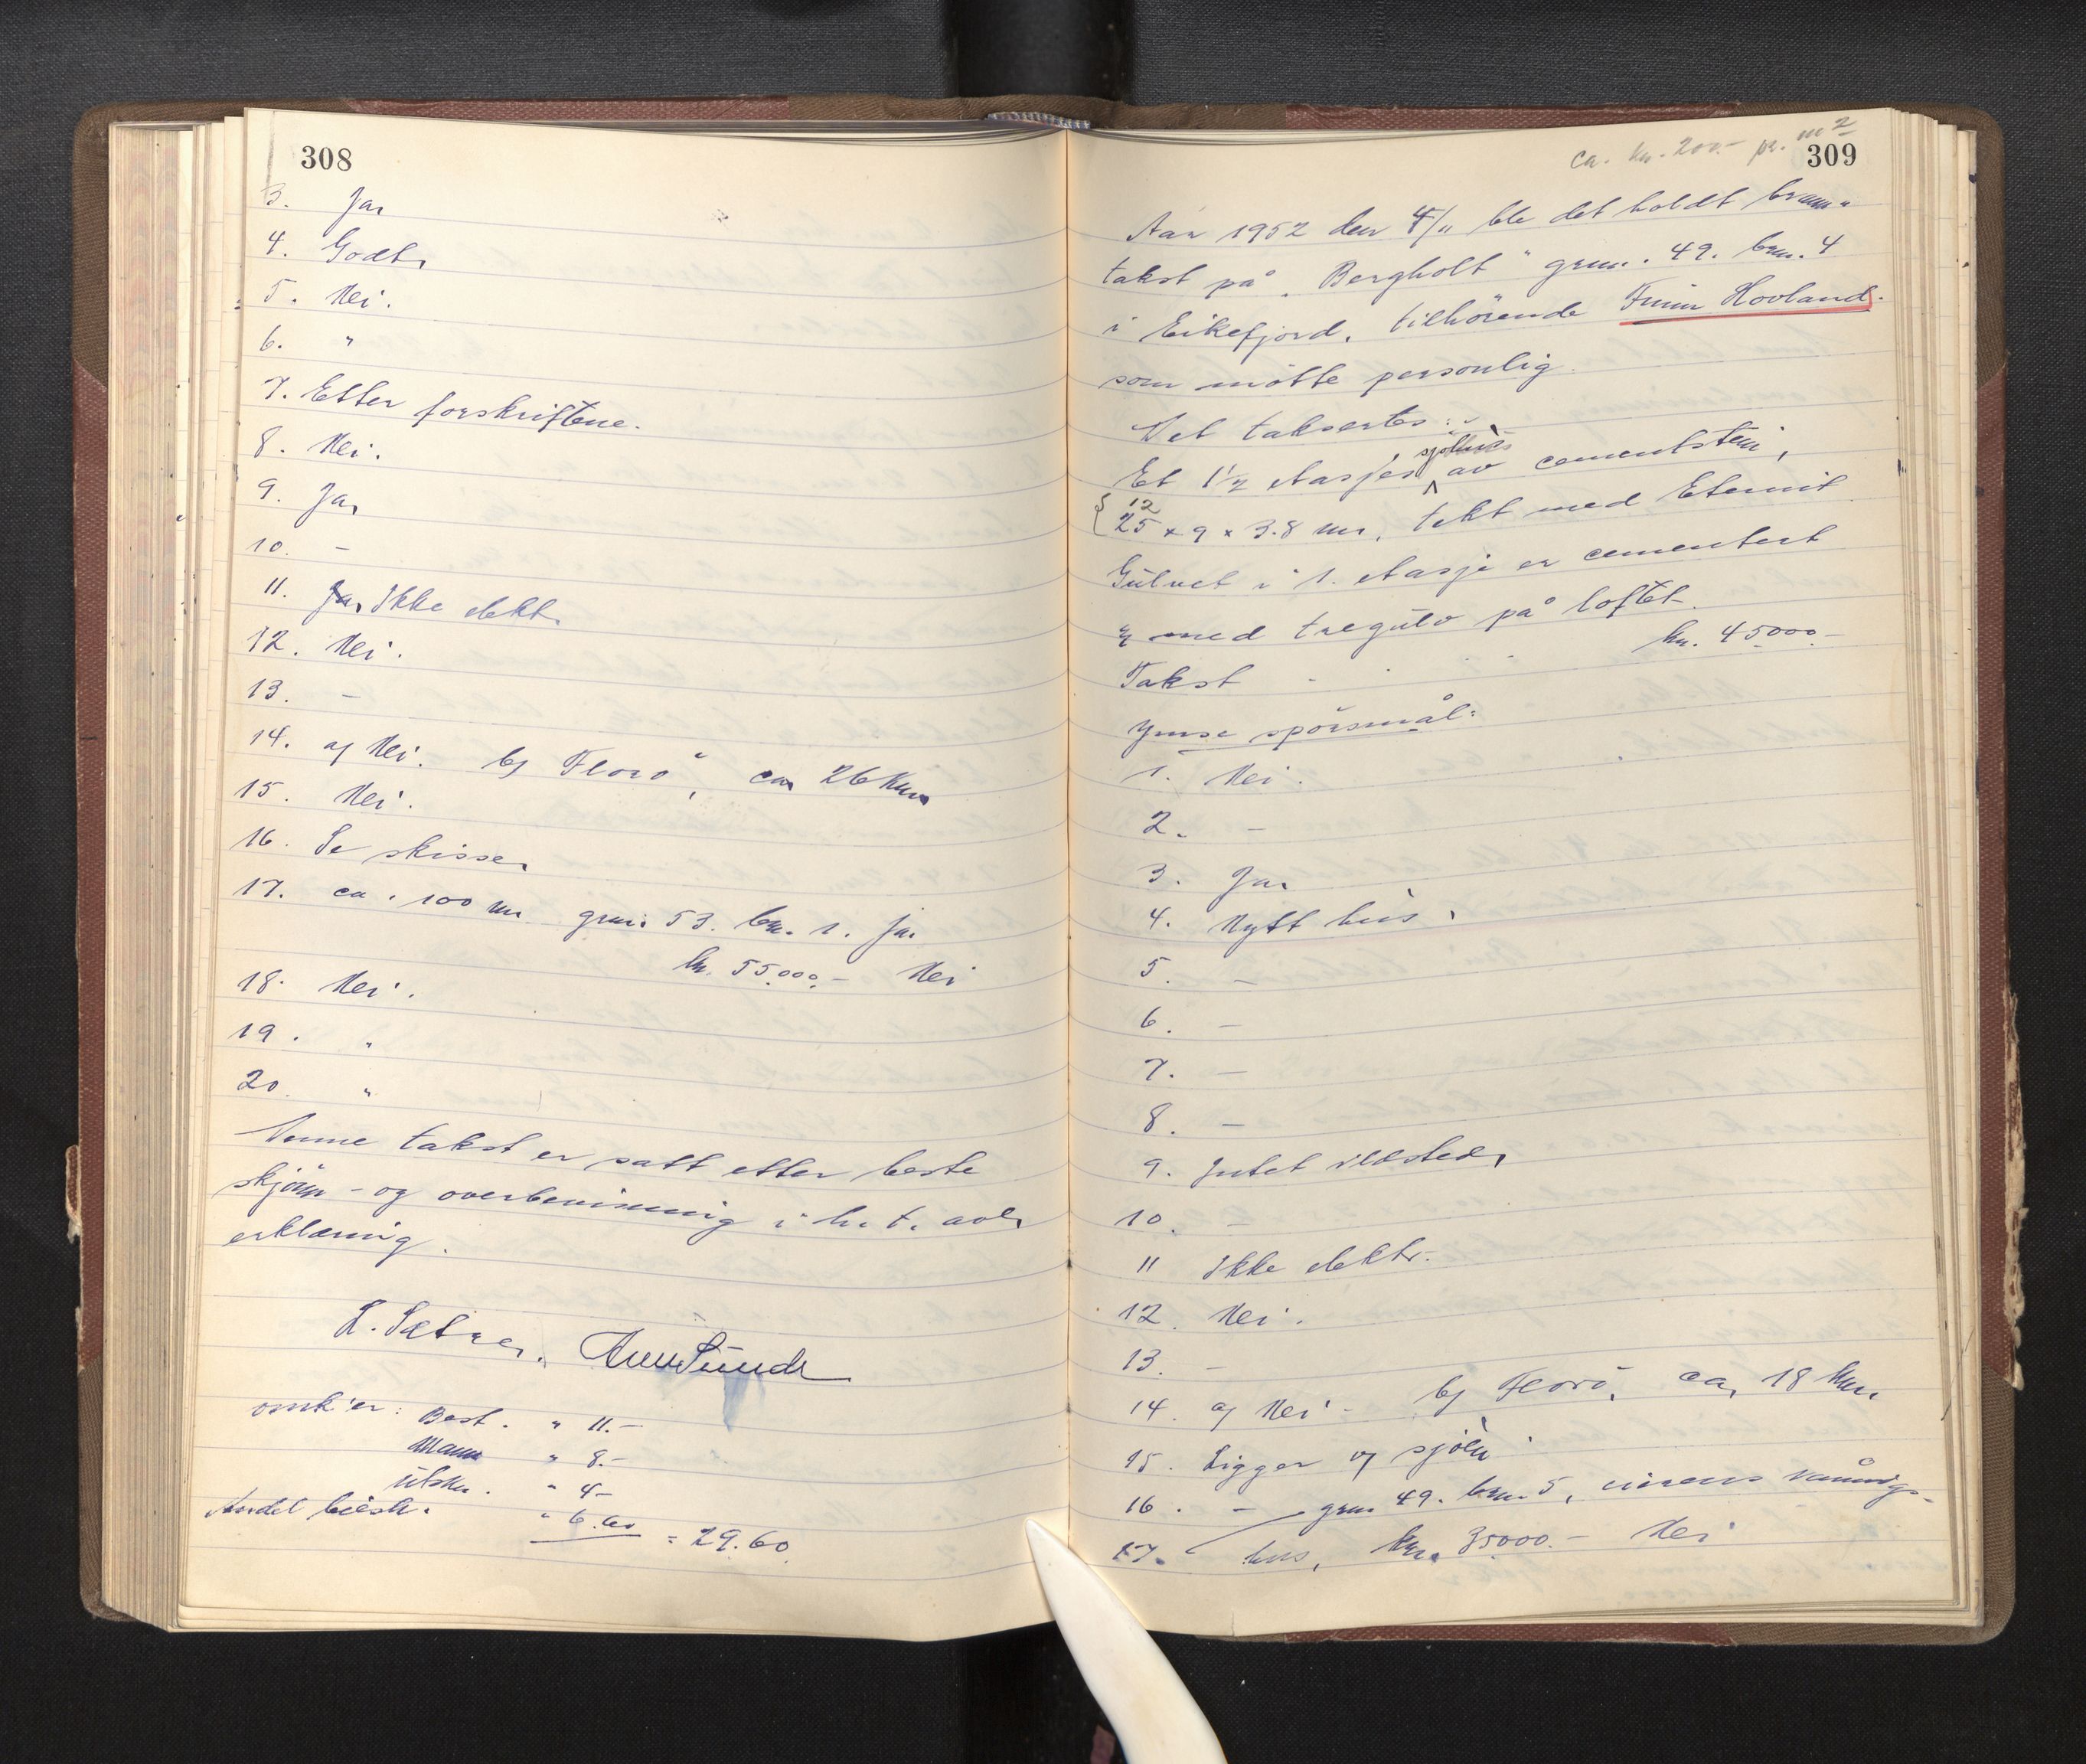 308
3. Ja,
4. Godt,
5. Nei.
6. "
7. Etter forskriftene.
8. Nei.
9. Ja,
10. –
11. Ikke elekt.
12. Nei.
13. –
14. a) Nei. b) Florø, ca 26 km
15. Nei.
16. Se skisse,
17. ca. 100 m grnr. 53. brn. 1. ja.
kr. 55.000.- Nei
18. Nei.
19. "
20. "
Denne takst er satt etter beste
skjönn - og overbevisning i h. t. avl.
erklæring.
L. Sætre.
omk'er: Best. " 11.-
Mann " 8.-
Utskr. " 4-
Andel " 6.60 = 29.60
ca. kr. 200.- pr. m2
309
Aar 1952 den 4/11 ble det holdt brann-
takst på "Bergholt" grnr. 49. brn. 4
i Eikefjord, tilhörende Finn Hovland.
som mötte personlig.
Det taksertes:
Et 1½ etasjes sjöhus av cementstein,
12
25 x 9 x 3.8 m, tekt med Eternit
Gulvet i 1. etasje er cementert
& med tregulv på loftet.
Takst kr. 45000-
Ymse spörsmål:
1. Nei.
2. –
3. Ja,
4. Nytt hus.
5. –
6. –
7. –
8. –
9. Intet ildsted,
10. –
11 Ikke elektr.
12. Nei.
13. –
14. a) Nei - b) Florö, ca, 18 km,
15. Ligger v) sjöen
16. – grnr 49. brn. 5, vånings-
17. hus, kr. 35000.- Nei